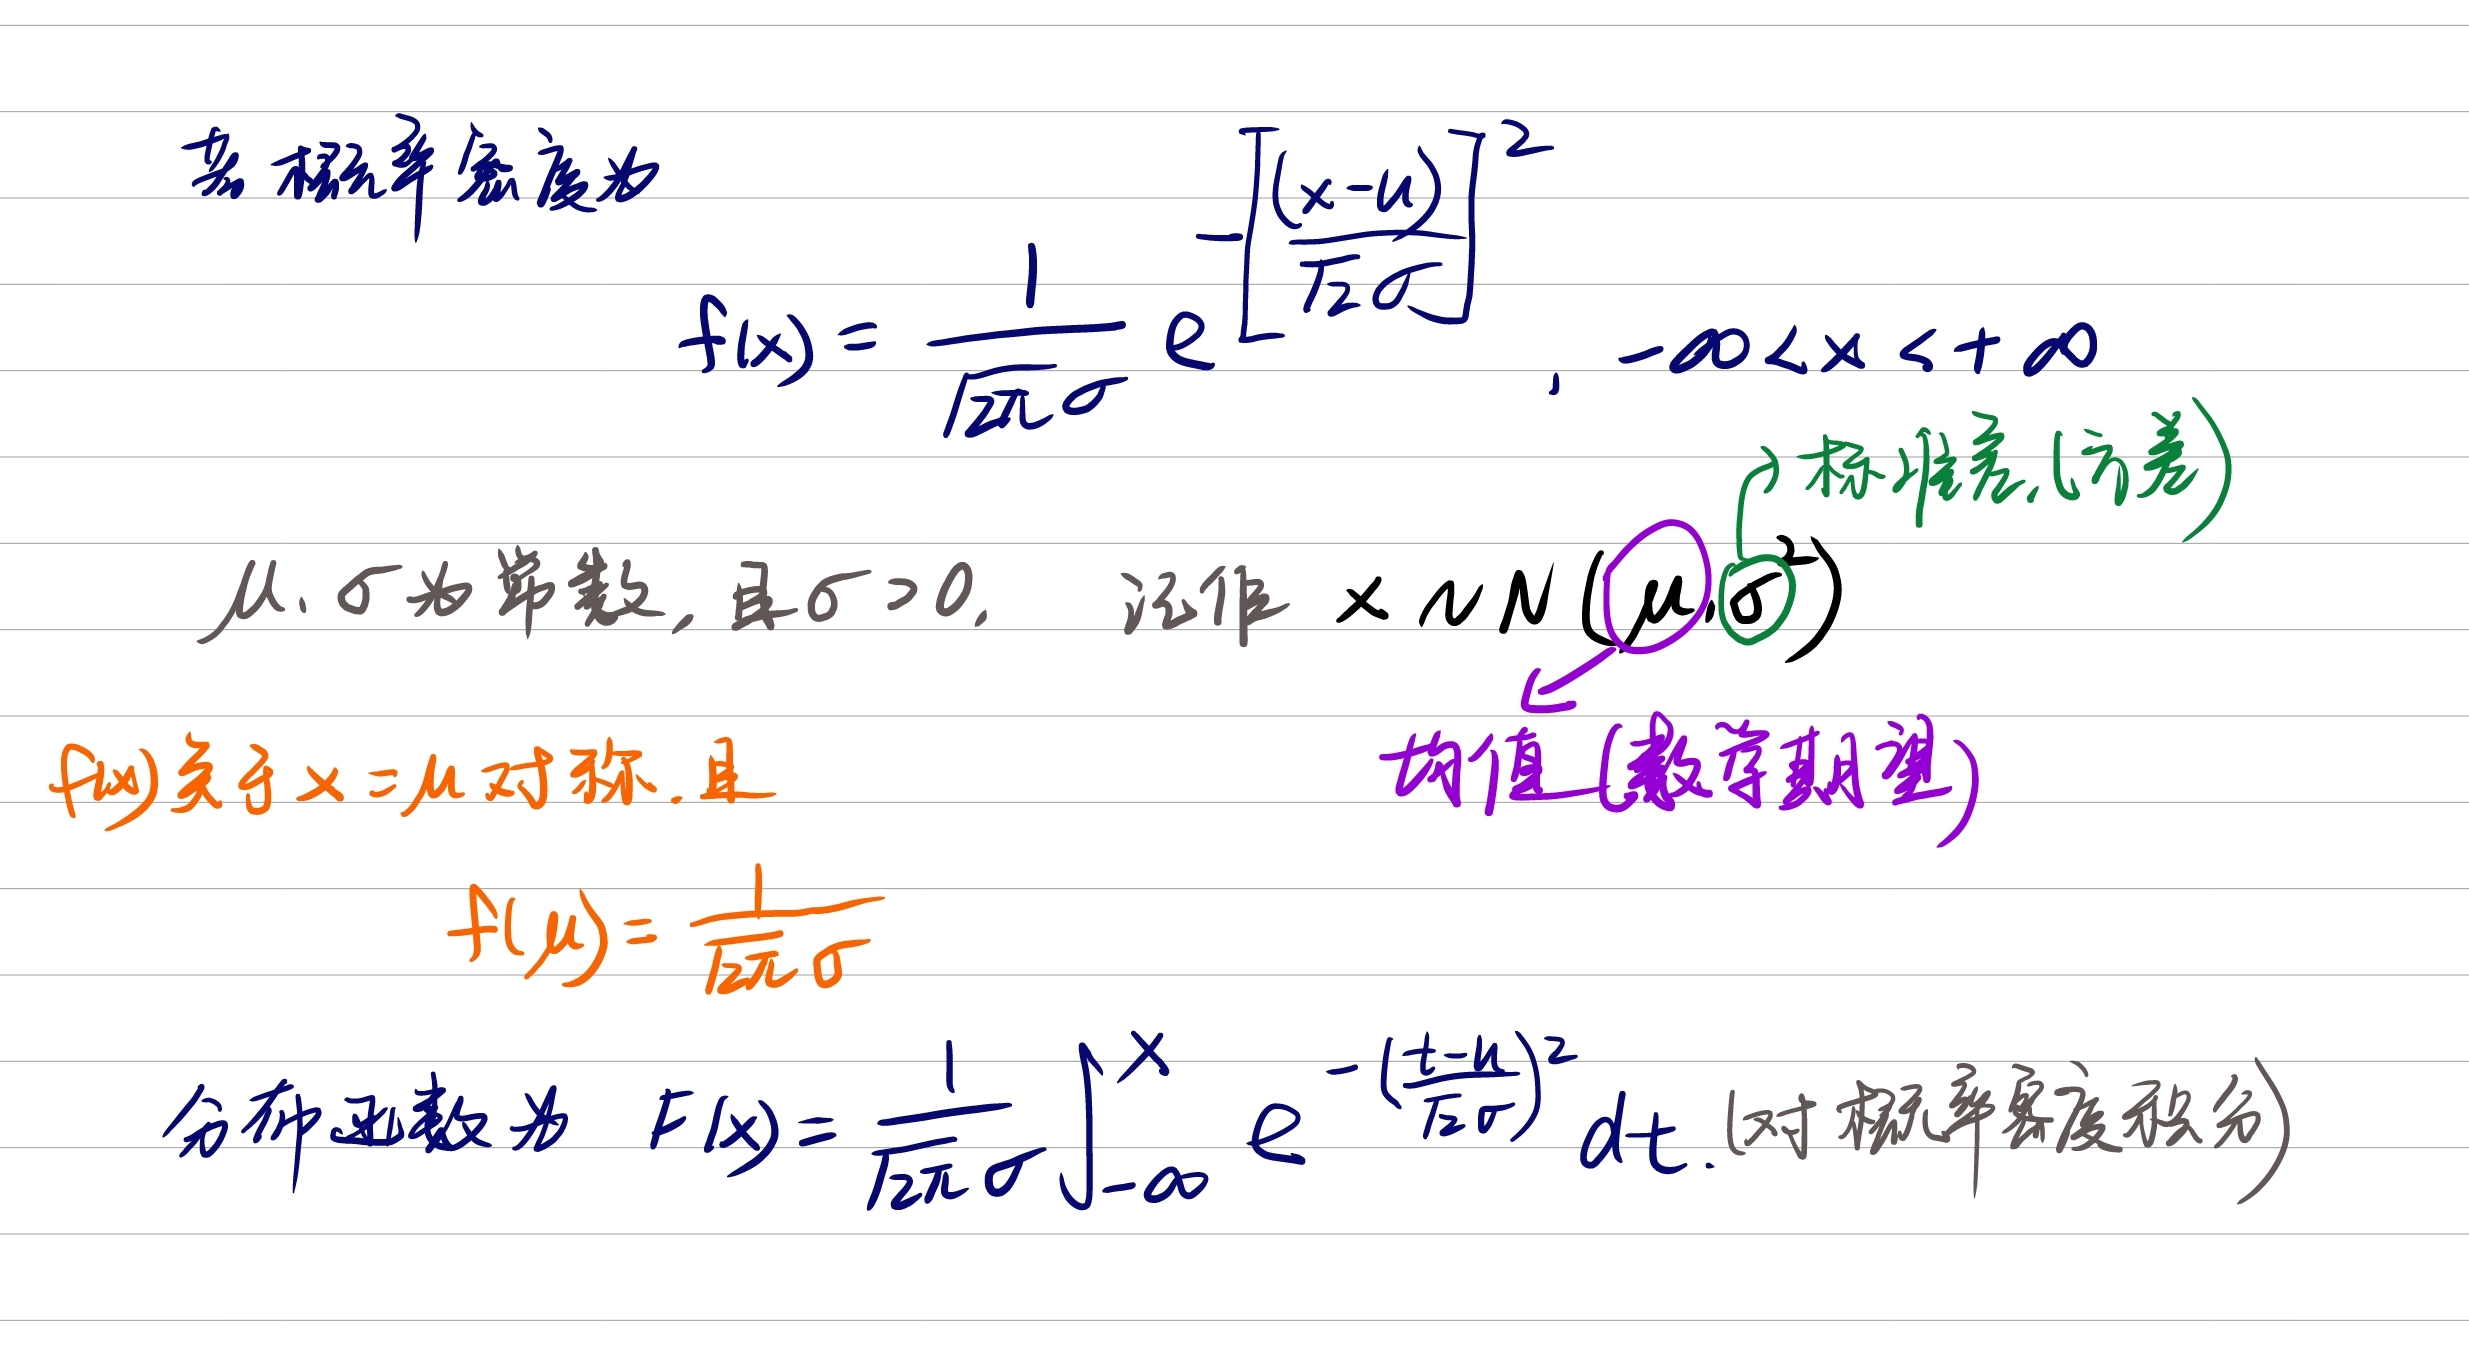 若概率密度为
f(x) = 1/(√2π σ) e^{-[(x-u)/(√2 σ)]^2}, -∞ < x < +∞
标准差(方差)
μ、σ为常数, 且σ>0, 记作 x ~ N(μ, σ²)
均值(数学期望)
f(x)关于x=μ对称.且
f(μ) = 1/(√2π σ)
分布函数为 F(x) = 1/(√2π σ) ∫_{-∞}^{x} e^{-((t-u)/(√2 σ))^2} dt. (对概率密度积分)